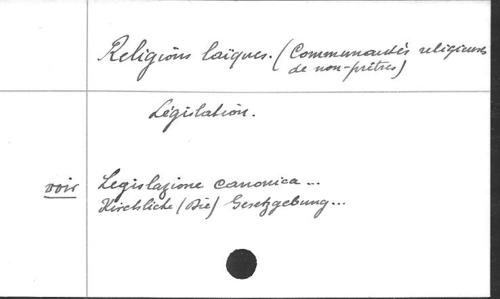 Religions laïques. (Communautés religieuses
de non-prêtres)
Législation.
voir Legislazione canonica...
Kirchliche (Die) Gesetzgebung...